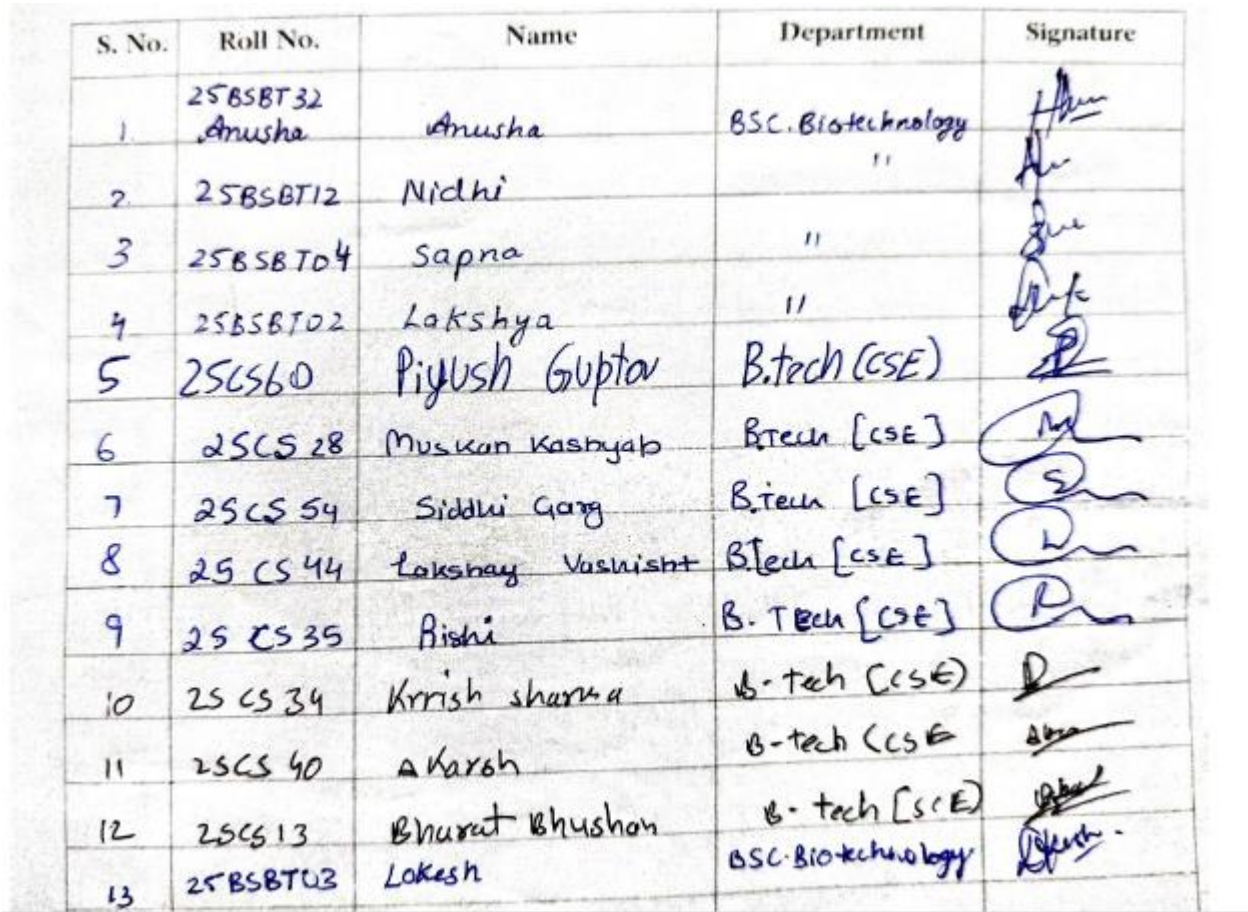 S. No. Roll No. Name Department Signature
25BSBT32
1. Anusha Anusha BSC. Biotechnology
2. 25BSBT12 Nidhi "
3 25BSBT04 Sapna "
4 25BSBT02 Lakshya "
5 25CS60 Piyush Gupta B.tech (CSE)
6 25CS 28 Muskan Kashyab B.Tech [CSE]
7 25CS 54 Siddhi Garg B.Tech [CSE]
8 25 CS 44 Lakshay Vashisht B.Tech [CSE]
9 25 CS 35 Rishi B. Tech [CSE]
10 25 CS 34 Krrish sharma B-tech (CSE)
11 25CS 40 Akarsh B-tech (CSE
12 25CS13 Bharat Bhushan B-tech [SCE)
13 25BSBT03 Lokesh BSC. Biotechnology